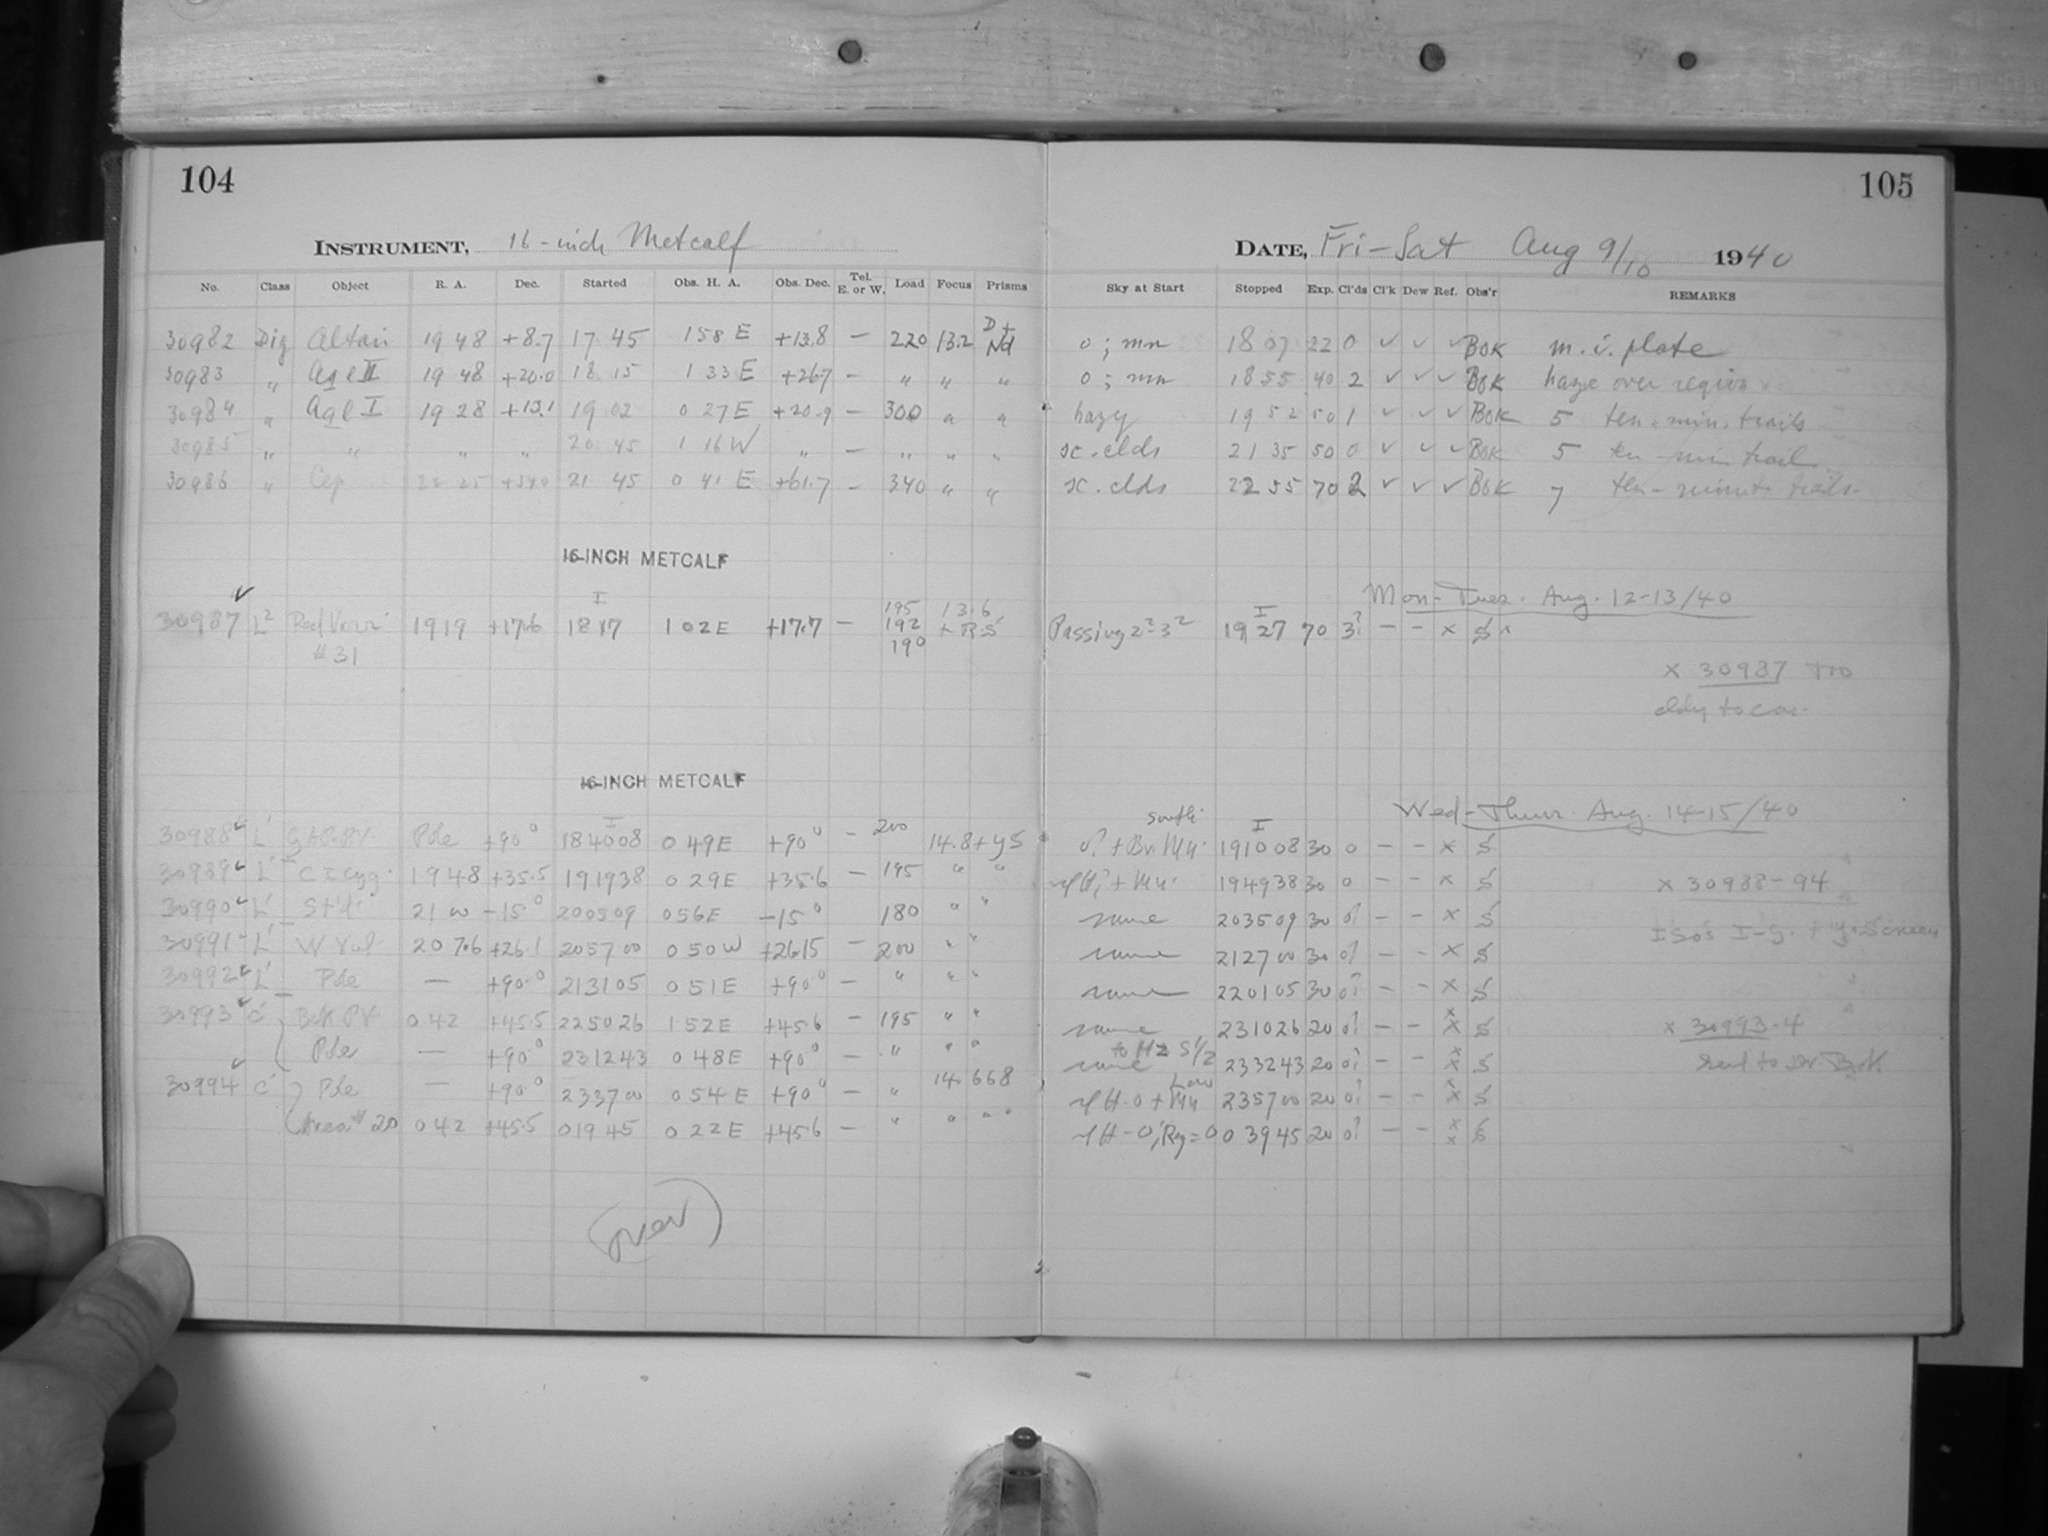 104
INSTRUMENT, 16-inch Metcalf
No. Class Object R. A. Dec. Started Obs. H. A. Obs. Dec. Tel. E. or W. Load Focus Prisms
30982 Dig Altair 19 48 +8.7 17 45 1 58 E +13.8 — 220 13.2 D + Nd
30983 " Aql II 19 48 +20.0 18 15 1 33 E +26.7 — " " "
30984 " Aql I 19 28 +13.1 19 02 0 27 E +20.9 — 300 " "
30985 " " " " 20 45 1 16 W " — " " "
30986 " Cep 21 45 0 41 E +61.7 — 340 " "
16-INCH METCALF
30987 L2 Red Vars #31 19 19 +17.6 I 18 17 1 02 E +17.7 — 195 192 190 13.6 + RS
16-INCH METCALF
30988 L' Pole +90° I 184008 0 49 E +90° — 200 14.8 + YS
30989 L' CI Cyg. 19 48 +35.5 191938 0 29 E +35.6 — 195 " "
30990 L' St'd. 21 00 -15° 200509 0 56 E -15° 180 " "
30991 L' W Vul. 20 7.6 +26.1 205700 0 50 W +26.15 — 200 " "
30992 L' Pole — +90.0 213105 0 51 E +90° — " " "
30993 C' Bok PV 0 42 +45.5 225026 1 52 E +45.6 — 195 " "
Pole — +90° 231243 0 48 E +90° — " " "
30994 C' Pole — +90° 233700 0 54 E +90° — " 14.668
Area # 20 0 42 +45.5 01945 0 22 E +45.6 — " " "
(over)
105
DATE, Fri-Sat Aug 9/10 1940
Sky at Start Stopped Exp. Cl'ds Cl'k Dew Ref. Obs'r REMARKS
0 ; mn 18 07 22 0 ✓ ✓ ✓ BOK m. i. plate
0 ; mn 18 55 40 2 ✓ ✓ ✓ BOK haze over region
hazy 19 52 50 1 ✓ ✓ ✓ BOK 5 ten-min. trails
sc. clds 21 35 50 0 ✓ ✓ ✓ BOK 5 ten-min trails
sc. clds 22 55 70 2 ✓ ✓ ✓ BOK 7 ten-minute trails.
Mon-Tues. Aug. 12-13/40
Passing 2?-3² I 19 27 70 3? — — x S
x 30987 Too
cldy to con.
Wed-Thurs. Aug. 14-15/40
South
0? + Br. Mn. I 191008 30 0 — — x S
194938 30 0 — — x S
x 30988-94
same 203509 30 0? — — x S
Iso's I-G. + Y. Screen
same 212700 30 0? — — x S
same 220105 30 0? — — x S
same 231026 20 0? — — x x S
x 30993-4
same to Hz S1/2 233243 20 0? — — x x S
sent to Dr Bok
Low
235700 20 0? — — x x S
03945 20 0? — — x x S